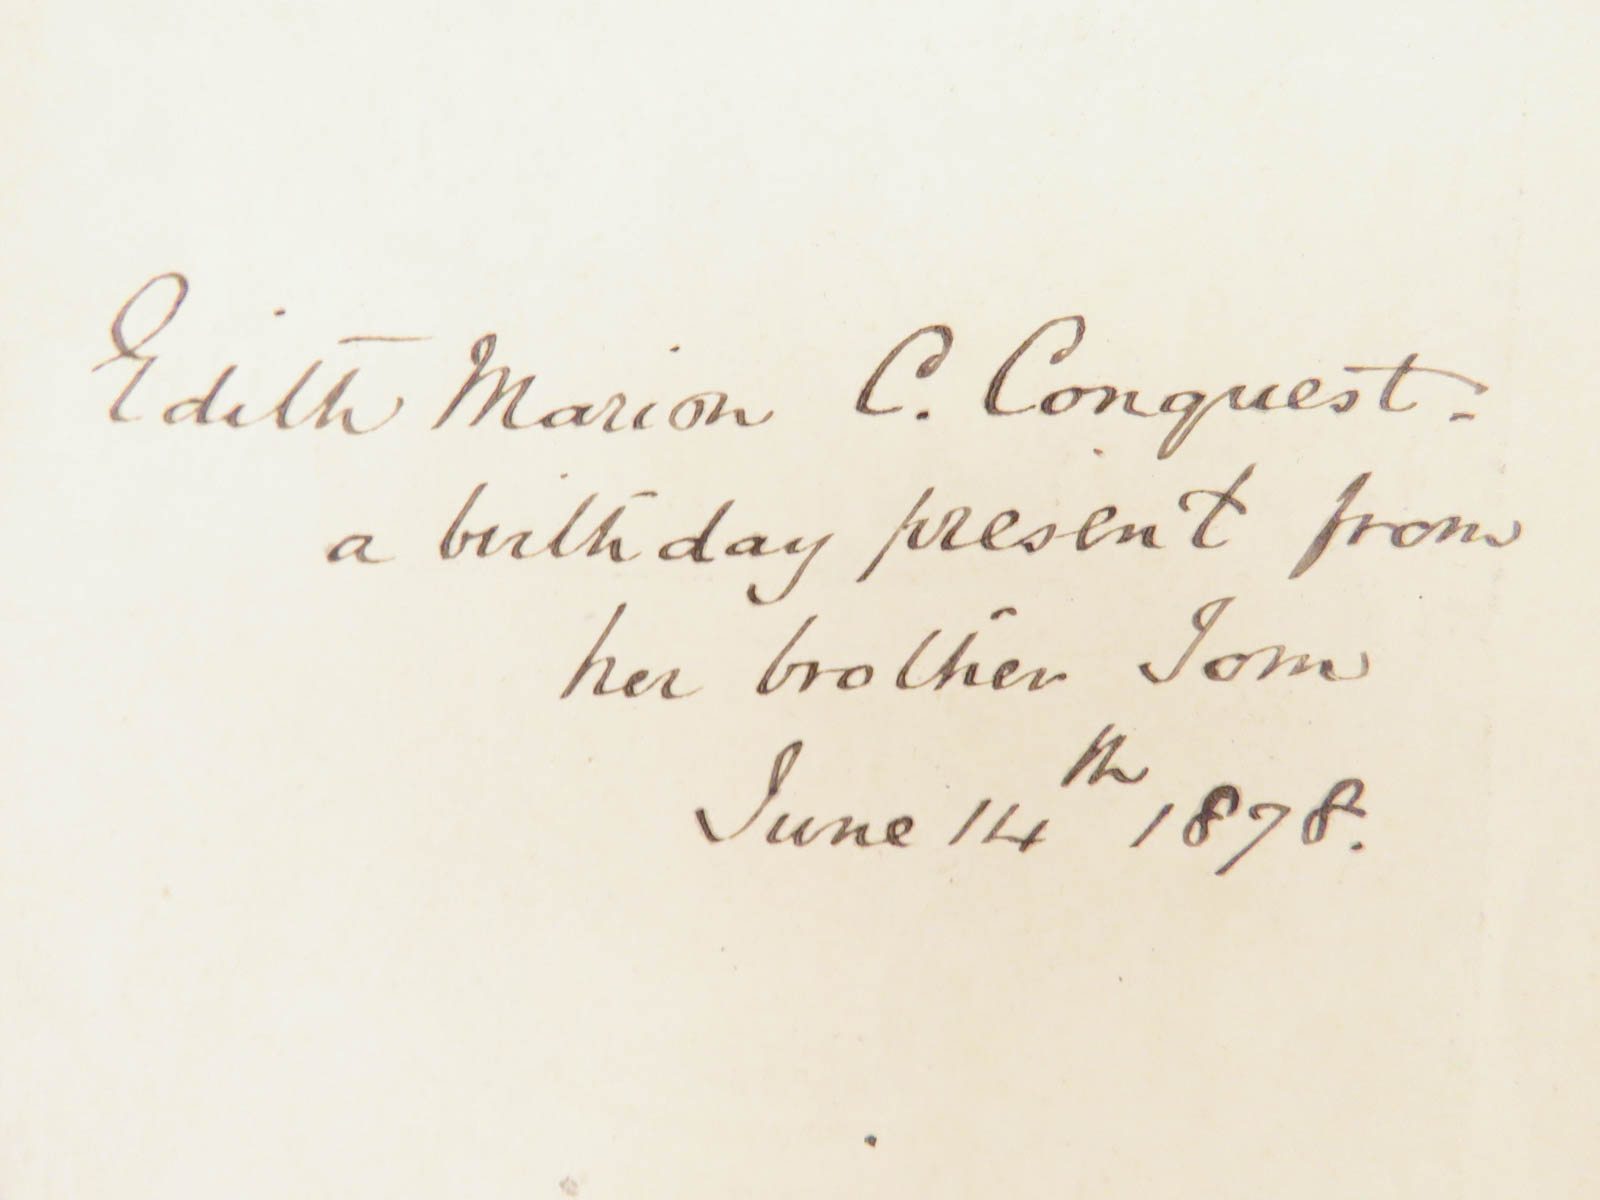 Edith Marion C. Conquest -
a birthday present from
her brother Tom
June 14th 1878.